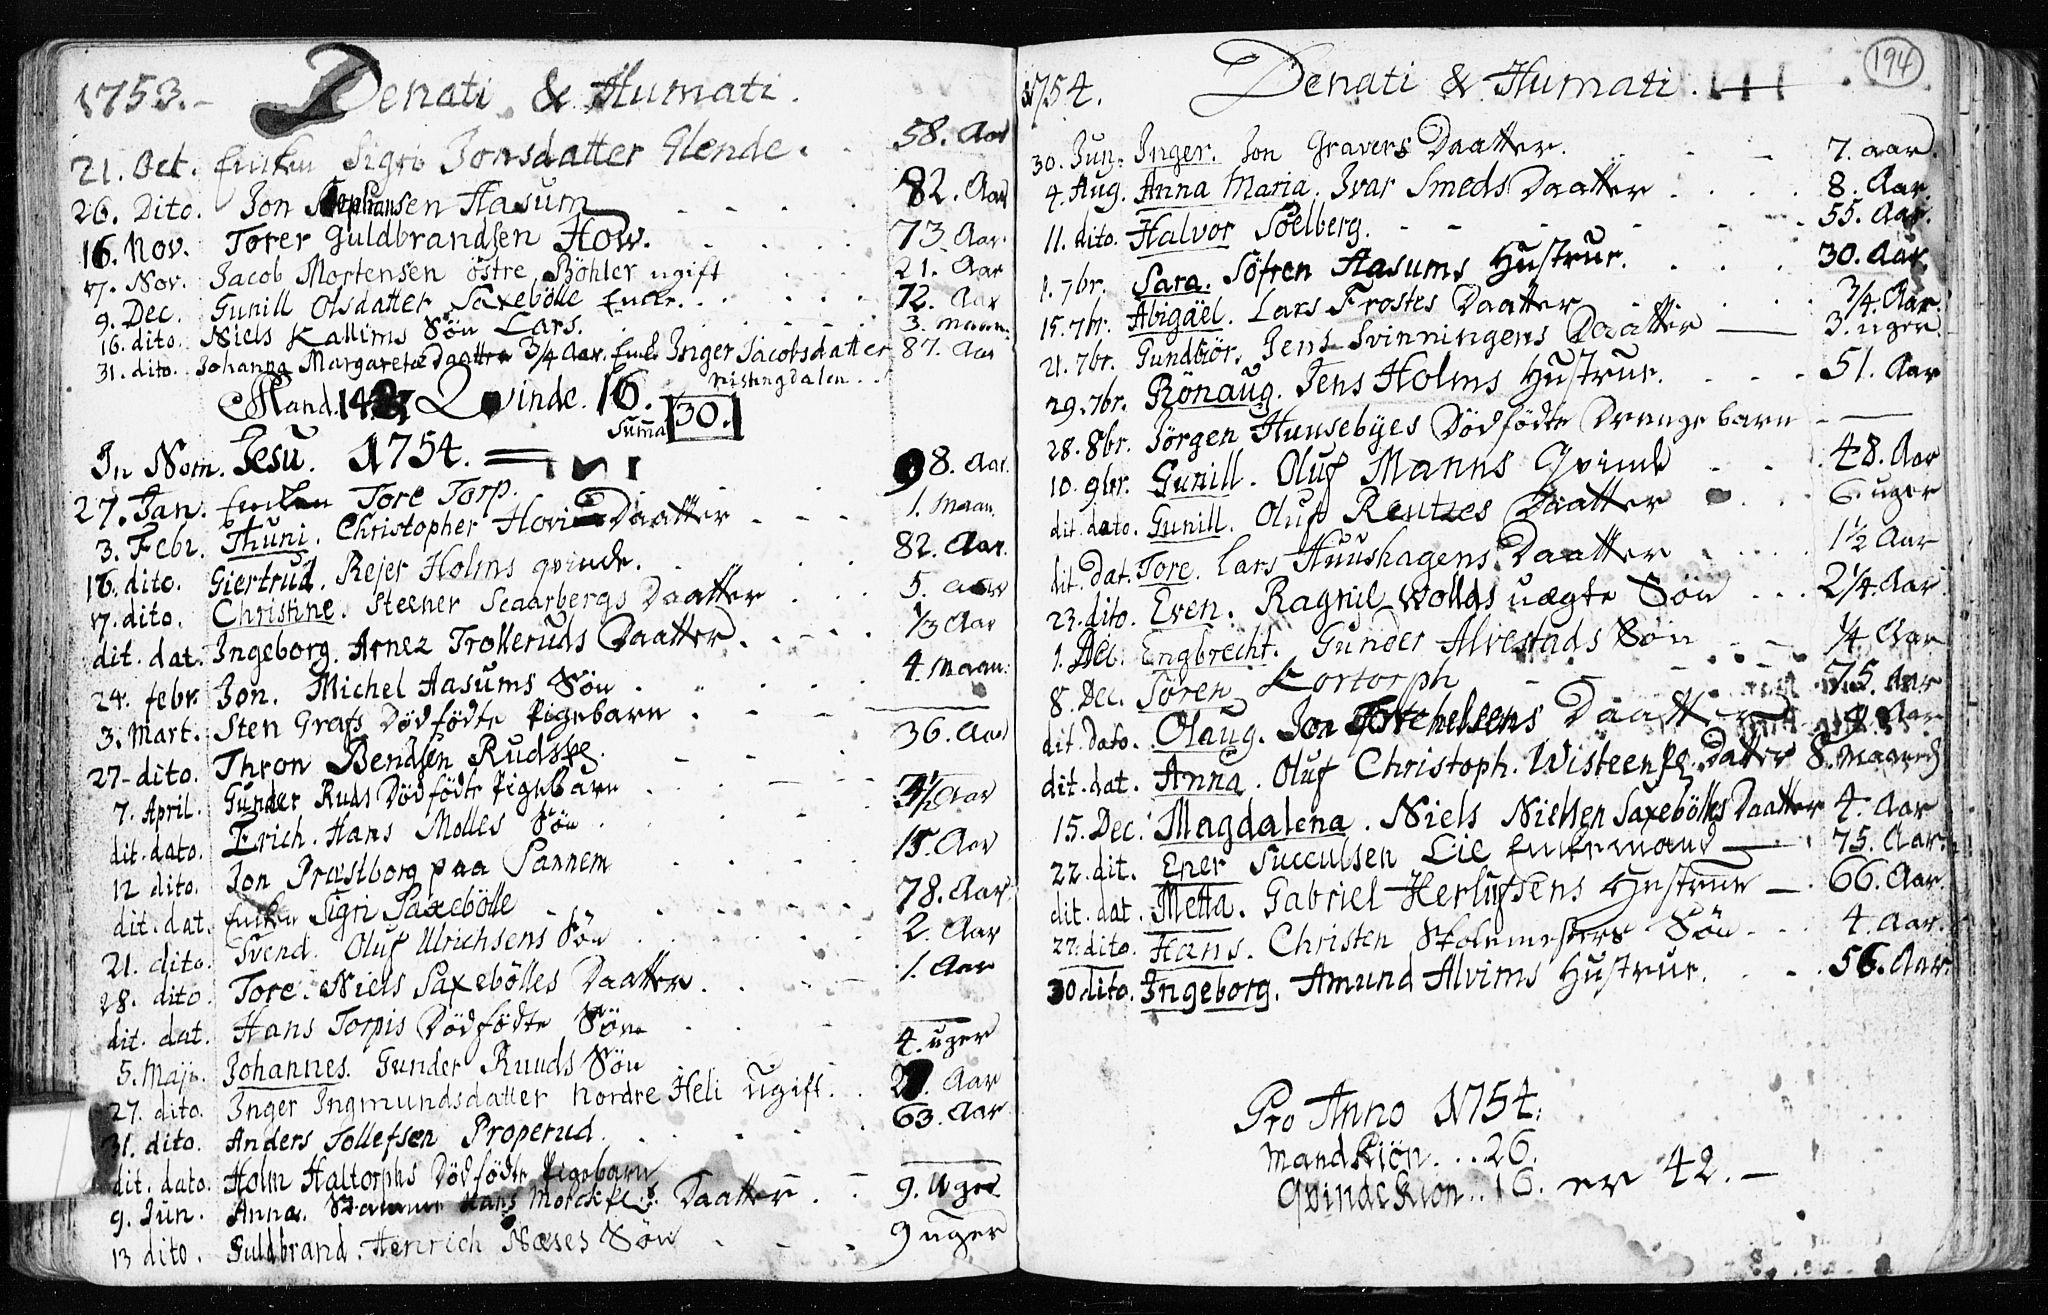 1753. Denati & Humati.
21. Oct. Enken Sigri Jonsdatter Glende. 58. Aar
26. Dito. Jon Stephansen Aasum 82. Aar
16. Nov. Torer Guldbrandsen How. 73. Aar.
17. Nov. Jacob Mortensen östre Böhler ugift 21. Aar
9. Dec. Gunill Olsdatter Saxebölle Enke. 72. Aar
16. dito. Niels Kallims Sön Lars. 3. Maan.
31. dito. Johanna Margareta Daatter 3/4 Aar. Enk. Inger Jacobsdatter 87. Aar
nistingdalen
Mand. 14 Qvinde. 16. Suma 30.
In Nom. Jesu. 1754.
27. Jan. Enken Tore Torp. 98. Aar
3. Febr. Thuni. Christopher Hovi Daatter 1. Maan.
16. dito. Giertrud. Rejer Holms qvinde. 82. Aar.
17. dito. Christine. Steener Scaarbergs Daatter 5. Aar
dit. dat. Ingeborg. Arnez Trolleruds Daatter. 1/3 Aar
24. febr. Jon. Michel Aasums Sön 4. Maan.
3. Mart. Sten Grafs Dödfödte Pigebarn
27 dito. Thron Bendsen Rudspe. 36. Aar
7. April. Gunder Ruds Dödfödte Pigebarn
dit. dato. Erich. Hans Molles Sön 3 1/2 Aar
12 dito. Jon Præstborg paa Sannem 15. Aar
dit. dat. Enken Sigri Saxebölle 78. Aar.
21. dito. Svend. Oluf Ulrichsens Sön 2. Aar
28. dito. Tore. Niels Saxebölles Daatter. 1. Aar
dit. dat. Hans Torpis Dödfödte Sön
5. Maji. Johannes. Gunder Ruuds Sön 4. uger
27. dito. Inger Ingmundsdatter Nordre Heli ugift. Aar
31. dito. Anders Tollefsen Properud. 63. Aar
dit. dato. Holm Haltorphs Dödfödte Pigebarn
9. Jun. Anna. Hans Daatter. 9. Uger
13 dito. Guldbrand. Henrich Næses Sön 9 uger
1754. Denati & Humati. 194
30. Jun. Inger. Jon Gravers Daatter. 7. aar.
4. Aug. Anna Maria. Ivar Smeds Daatter 8. Aar
11. dito. Halvor Soelberg. 55. Aar.
1. 7br. Sara. Söfren Aasums Hustrue. 30. Aar
15. 7br. Abigäel. Lars Frostes Daatter 3/4 Aar.
21. 7br. Gundbiör. Jens Svinningens Daatter 3. uger
29. 7br. Rönaug. Jens Holms Hustrue. 51. Aar
28. 8br. Jörgen Huusebyes Dödfödte Drengebarn
10. 9br. Gunill. Oluf Manns Qvinde 48. Aar
dit. dato. Gunill. Oluf Reutzes Daatter 6. uger
dit. Dat. Tore. Lars Huushagens Daatter 1 1/2 Aar
23. dito. Even. Ragnil Wollds uægte Sön 2 1/4. Aar
1. Dec. Engbrecht. Gunder Alvestads Sön 1/4 Aar
8. Dec. Sören Kortorph 75. Aar
dit. dato. Olaug. Jon Daatter Aar
dit. dat. Anna. Oluf Christoph. Datter 8. Maaned
15. Dec. Magdalena. Niels Nielsen Saxebölles Daatter 4. Aar
22. dit. Ener Succulsen Lie Enkemand 75. Aar.
dit. dat. Metta. Gabriel Herlufsens Hustrue 66. Aar.
27. dito. Hans. Christen Skolemesters Sön 4. Aar.
30 dito. Ingeborg. Amund Alvims Hustrue. 56. Aar.
Pro Anno 1754.
Mandkiön... 26.
Qvindekion.. 16. er 42.